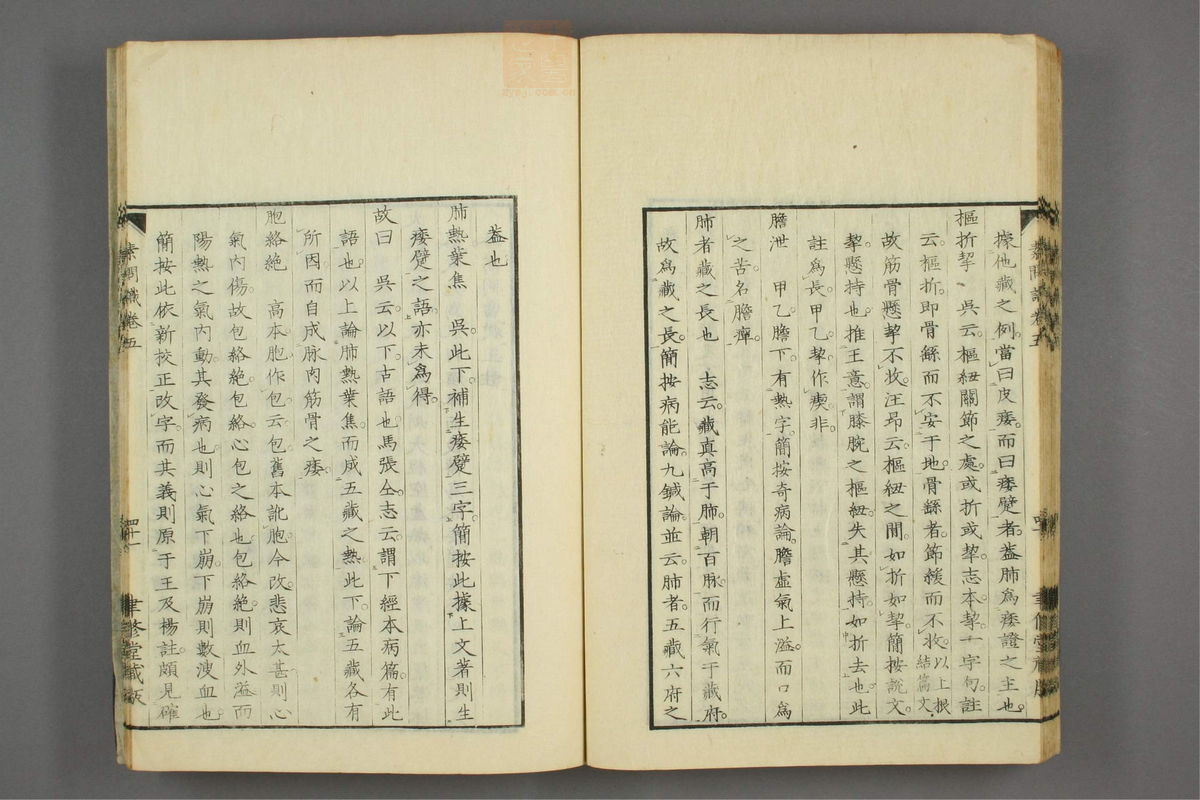 據他藏之例。當曰皮痿。而曰痿躄者。葢肺爲痿證之主也。
樞折挈　吳云。樞紐關節之處。或折或挈。志本。挈一字句。註
云。樞折即骨繇而不安于地。骨繇者。節緩而不收。以上根結篇文。
故筋骨懸挈不收。汪昂云。樞紐之間。如折如挈。簡按說文。
挈。懸持也。推王意。謂膝腕之樞紐。失其懸持。如折去也。此
註爲長。甲乙。挈作瘈。非。
膽泄　甲乙膽下。有熱字。簡按奇病論。膽虛氣上溢。而口爲
之苦。名膽癉。
肺者藏之長也　志云。藏真高于肺。朝百脉。而行氣于藏府。
故爲藏之長。簡按病能論。九鍼論並云。肺者。五藏六府之
葢也
肺熱葉焦　吳。此下補生痿躄三字。簡按此據上文著則生
痿躄之語。亦未爲得。
故曰　吳云。以下。古語也。馬張仝。志云。謂下經本病篇。有此
語也。以上論肺熱葉焦。而成五藏之熱。此下論五藏各有
所因。而自成脉肉筋骨之痿。
胞絡絶　高本。胞作包。云包。舊本訛胞。今改。悲哀太甚。則心
氣內傷。故包絡絶。包絡。心包之絡也。包絡絶。則血外溢。而
陽熱之氣內動。其發病也。則心氣下崩。下崩則數溲血也。
簡按此依新校正改字。而其義則原于王及楊註。頗見確
素問識卷五
四十一
聿修堂藏版